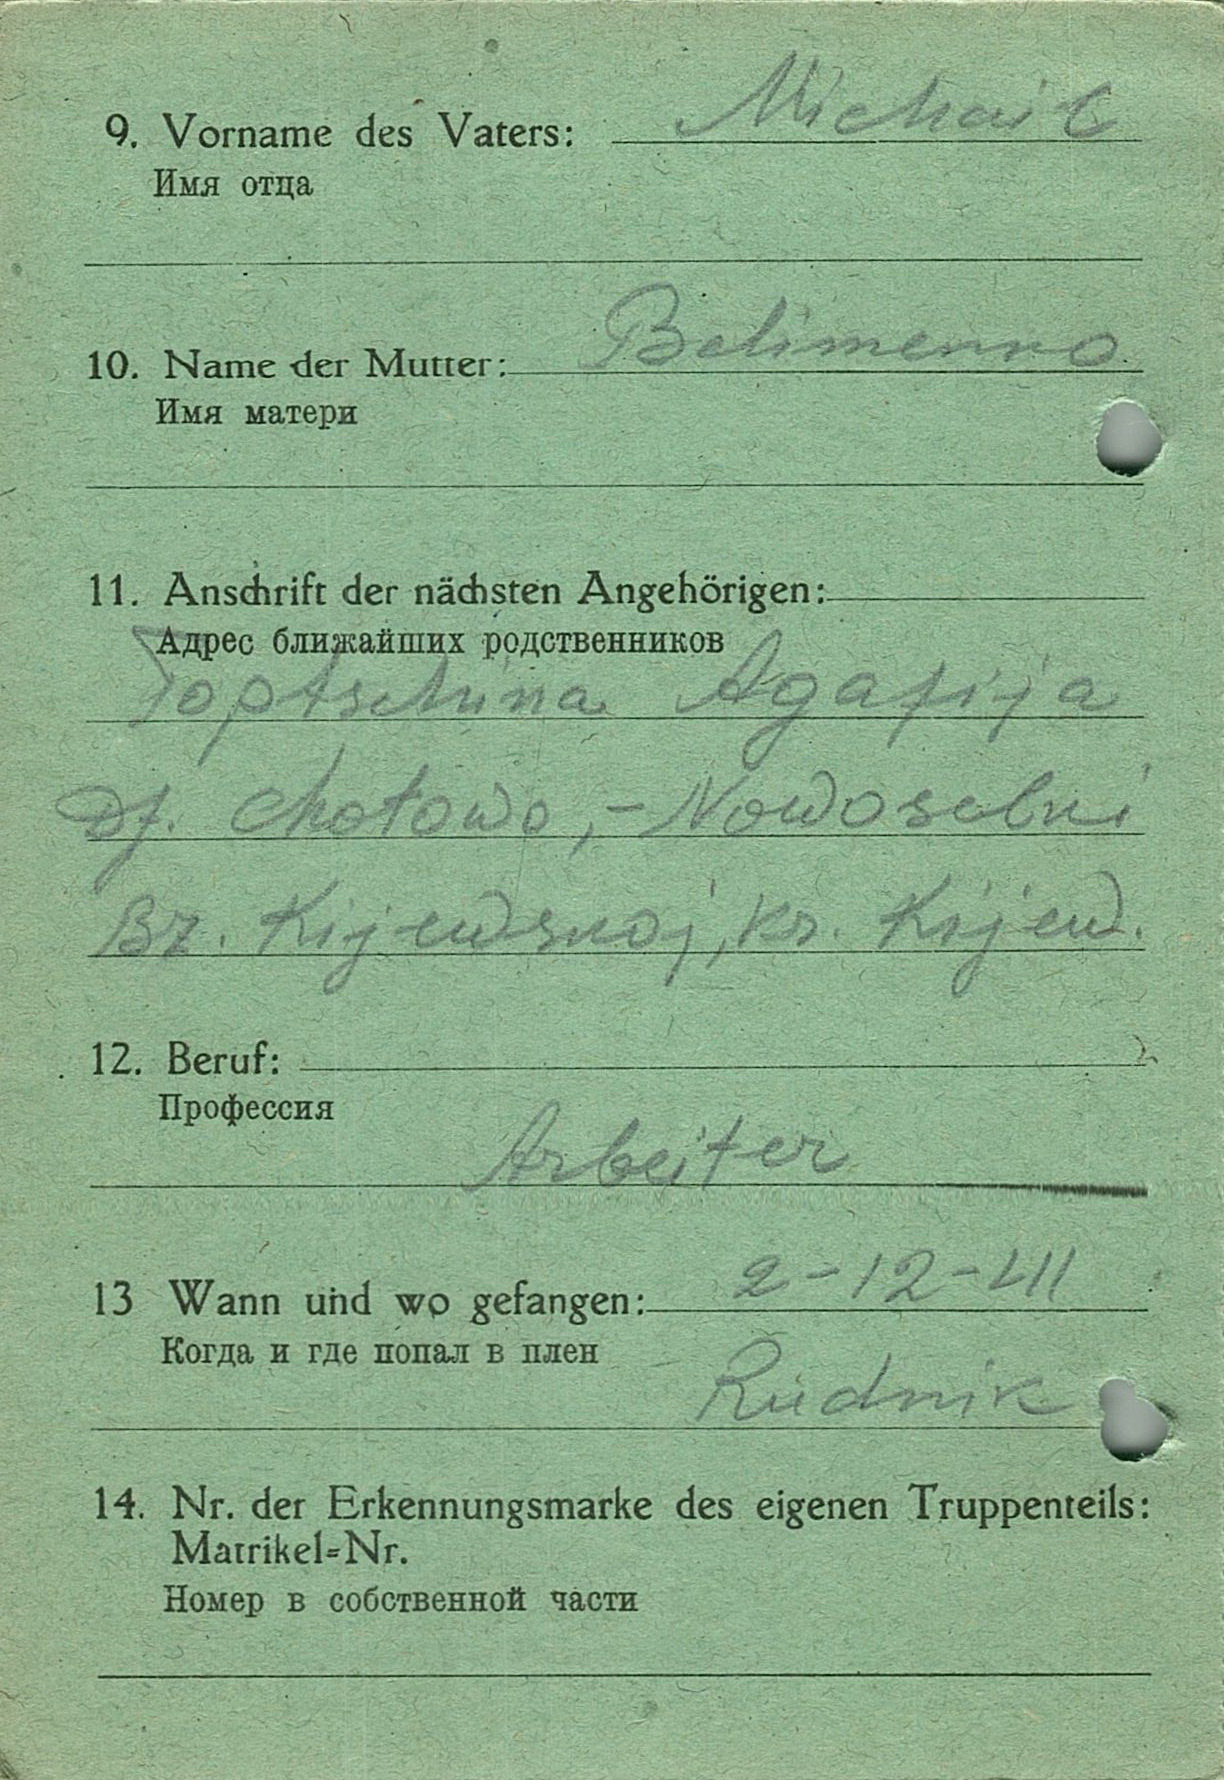 9. Vorname des Vaters: Michail
Имя отца
10. Name der Mutter: Belimenko
Имя матери
11. Anschrift der nächsten Angehörigen:
Адрес ближайших родственников
Toptschina Agafija
Df. Chotowo, - Nowoselki
Bz. Kijewskoj, Kr. Kijew.
12. Beruf:
Профессия
Arbeiter
13 Wann und wo gefangen: 2-12-41
Когда и где попал в плен
Rudnik
14. Nr. der Erkennungsmarke des eigenen Truppenteils:
Matrikel=Nr.
Номер в собственной части